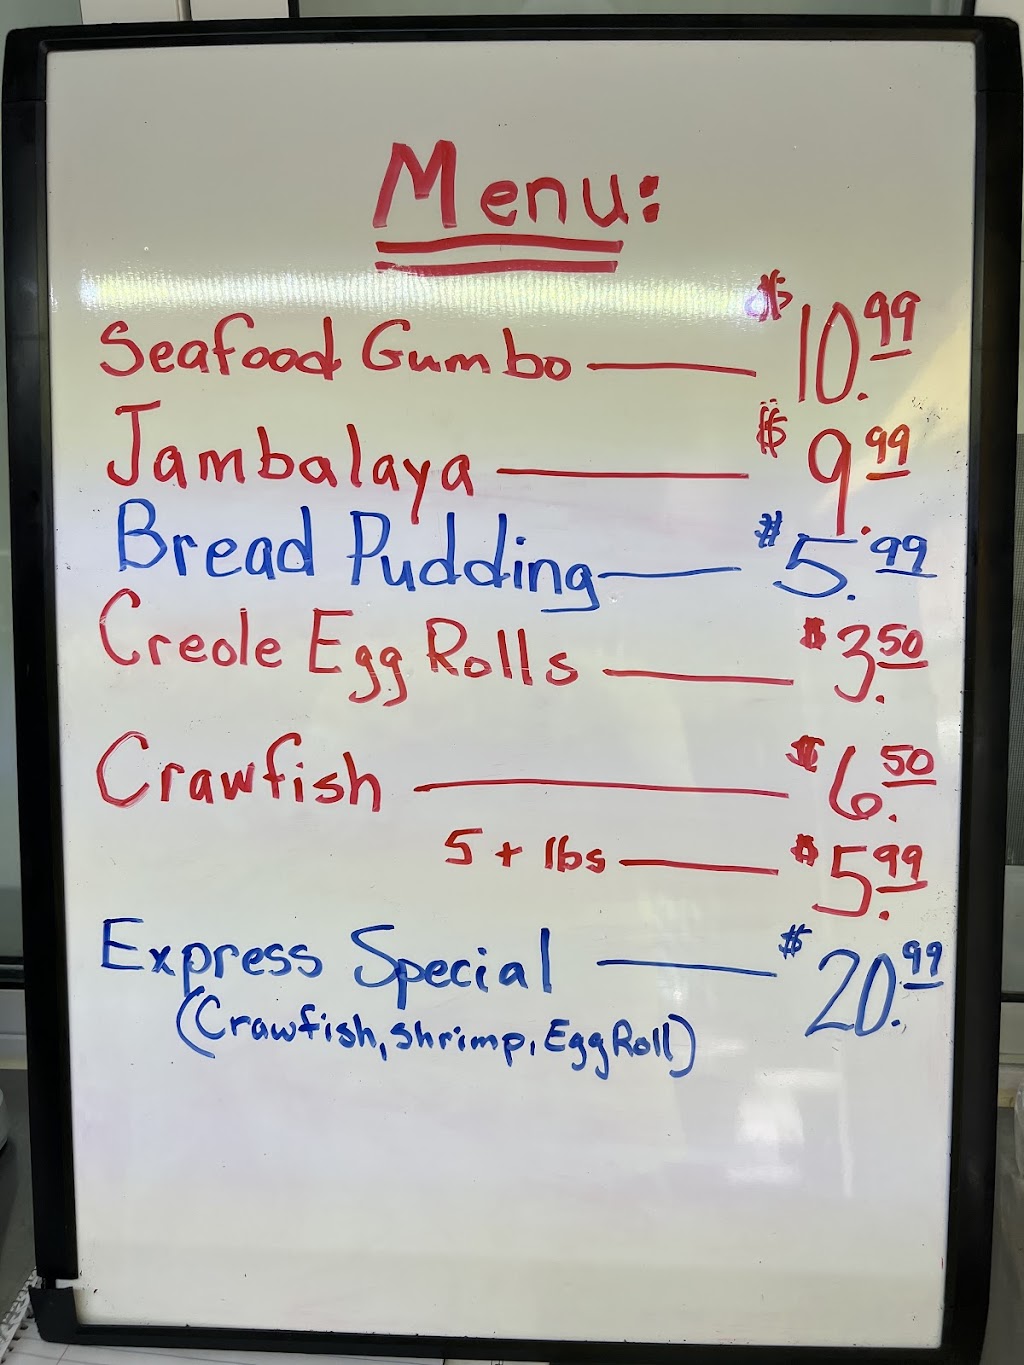 Menu:
Seafood Gumbo — $10.99
Jambalaya — $9.99
Bread Pudding — $5.99
Creole Egg Rolls — $3.50
Crawfish — $6.50
5 + lbs — $5.99
Express Special — $20.99
(Crawfish, shrimp, Egg Roll)